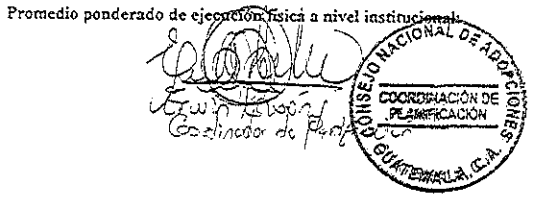 Promedio ponderado de ejecución física a nivel institucional:
Coordinador de Planificación
CONSEJO NACIONAL DE ADOPCIONES
COORDINACIÓN DE
PLANIFICACIÓN
GUATEMALA, C.A.